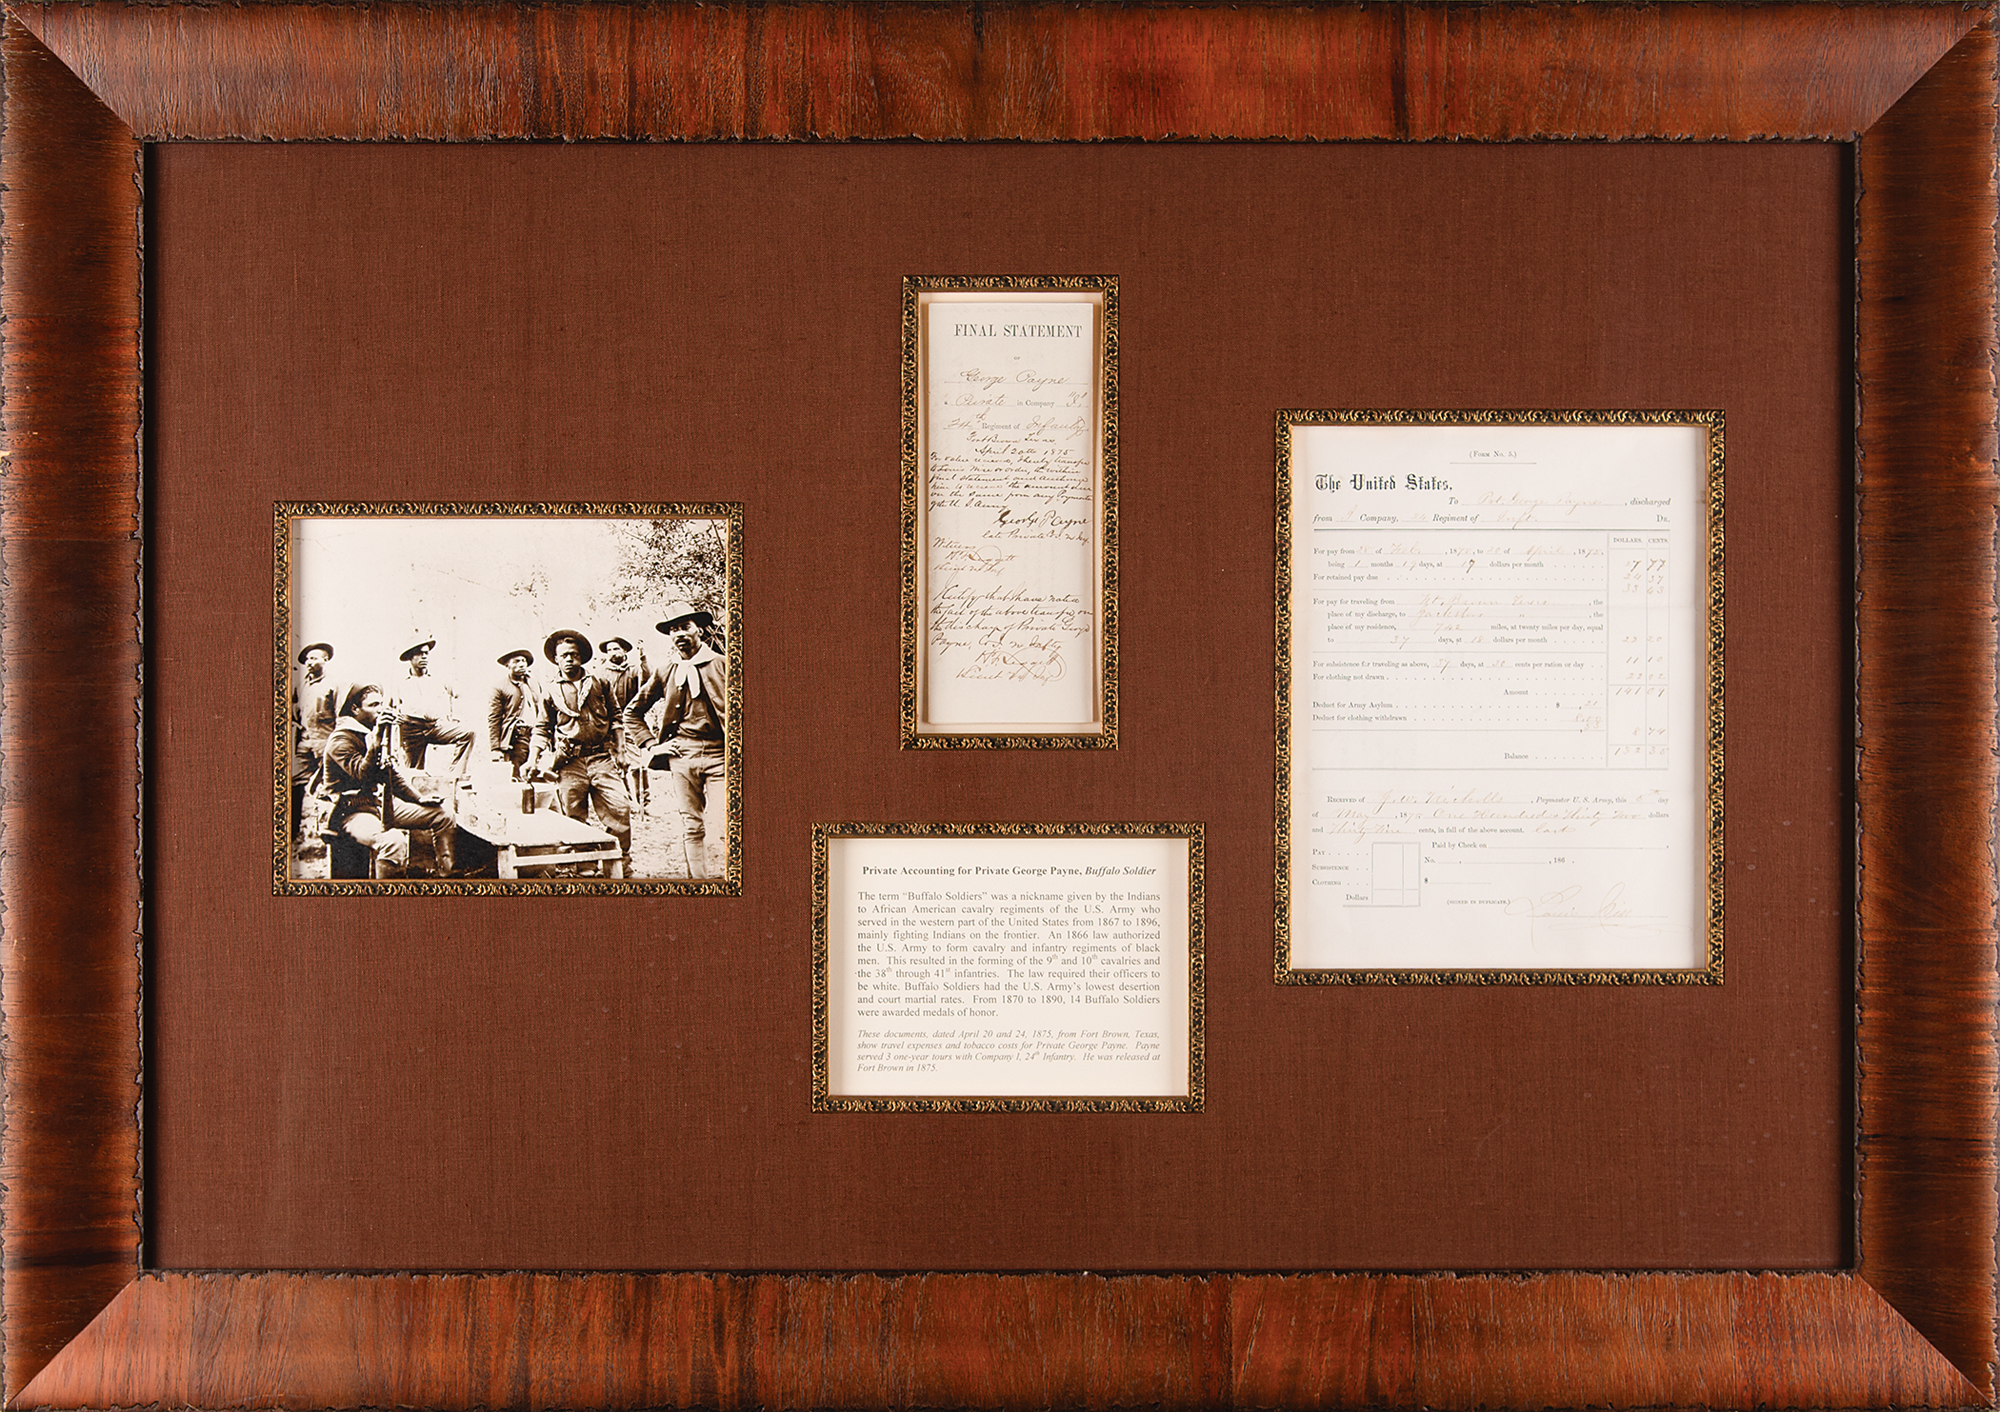 FINAL STATEMENT
OF
George Payne
Private in Company "I"
24th Regiment of Infantry
Fort Brown Texas
April 20th 1875
For value received, I hereby transfer
to Louis or order, the within
final statement and authorize
him to receive the amount due
on the same from any Paymaster
of the U.S. Army
George Payne
late Private Co. I. 24 Infy.
Witness
I certify that I have noted
the fact of the above transfer, on
the discharge of Private George
Payne, Co. I. 24 Infty
Lieut 24 Infy
(Form No. 5.)
The United States,
To Pvt. George Payne, discharged
from I Company, 24 Regiment of Infty. Dr.
DOLLARS. CENTS.
For pay from of , 187 , to of April, 187 ,
being 1 months days, at 17 dollars per month
For retained pay due
For pay for traveling from Ft. Brown Texas, the
place of my discharge, to , the
place of my residence, 742 miles, at twenty miles per day, equal
to 37 days, at dollars per month
For subsistence for traveling as above, 37 days, at 30 cents per ration or day 11 10
For clothing not drawn
Amount
Deduct for Army Asylum $
Deduct for clothing withdrawn
Balance
Received of , Paymaster U. S. Army, this day
of May, 187 One Hundred & Thirty Two dollars
and cents, in full of the above account.
Pay Paid by Check on
Subsistence No. , 186 .
Clothing $
Dollars (SIGNED IN DUPLICATE.)
Private Accounting for Private George Payne, Buffalo Soldier
The term “Buffalo Soldiers” was a nickname given by the Indians
to African American cavalry regiments of the U.S. Army who
served in the western part of the United States from 1867 to 1896,
mainly fighting Indians on the frontier. An 1866 law authorized
the U.S. Army to form cavalry and infantry regiments of black
men. This resulted in the forming of the 9th and 10th cavalries and
the 38th through 41st infantries. The law required their officers to
be white. Buffalo Soldiers had the U.S. Army’s lowest desertion
and court martial rates. From 1870 to 1890, 14 Buffalo Soldiers
were awarded medals of honor.
These documents, dated April 20 and 24, 1875, from Fort Brown, Texas,
show travel expenses and tobacco costs for Private George Payne. Payne
served 3 one-year tours with Company I, 24th Infantry. He was released at
Fort Brown in 1875.